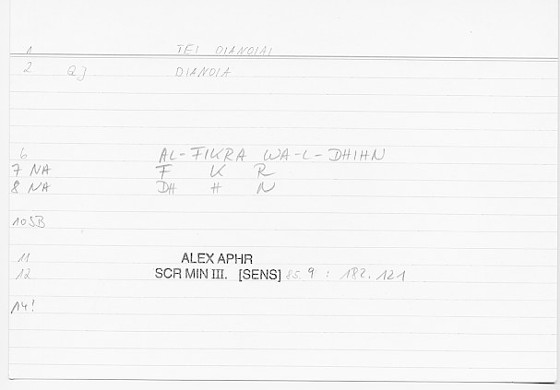 1 TEI DIANOIAI
2 QJ DIANOIA
6 AL-FIKRA WA-L-DHIHN
7 NA F K R
8 NA DH H N
10 SB
11 ALEX APHR
12 SCR MIN III. [SENS] 85.9 : 182.121
14!